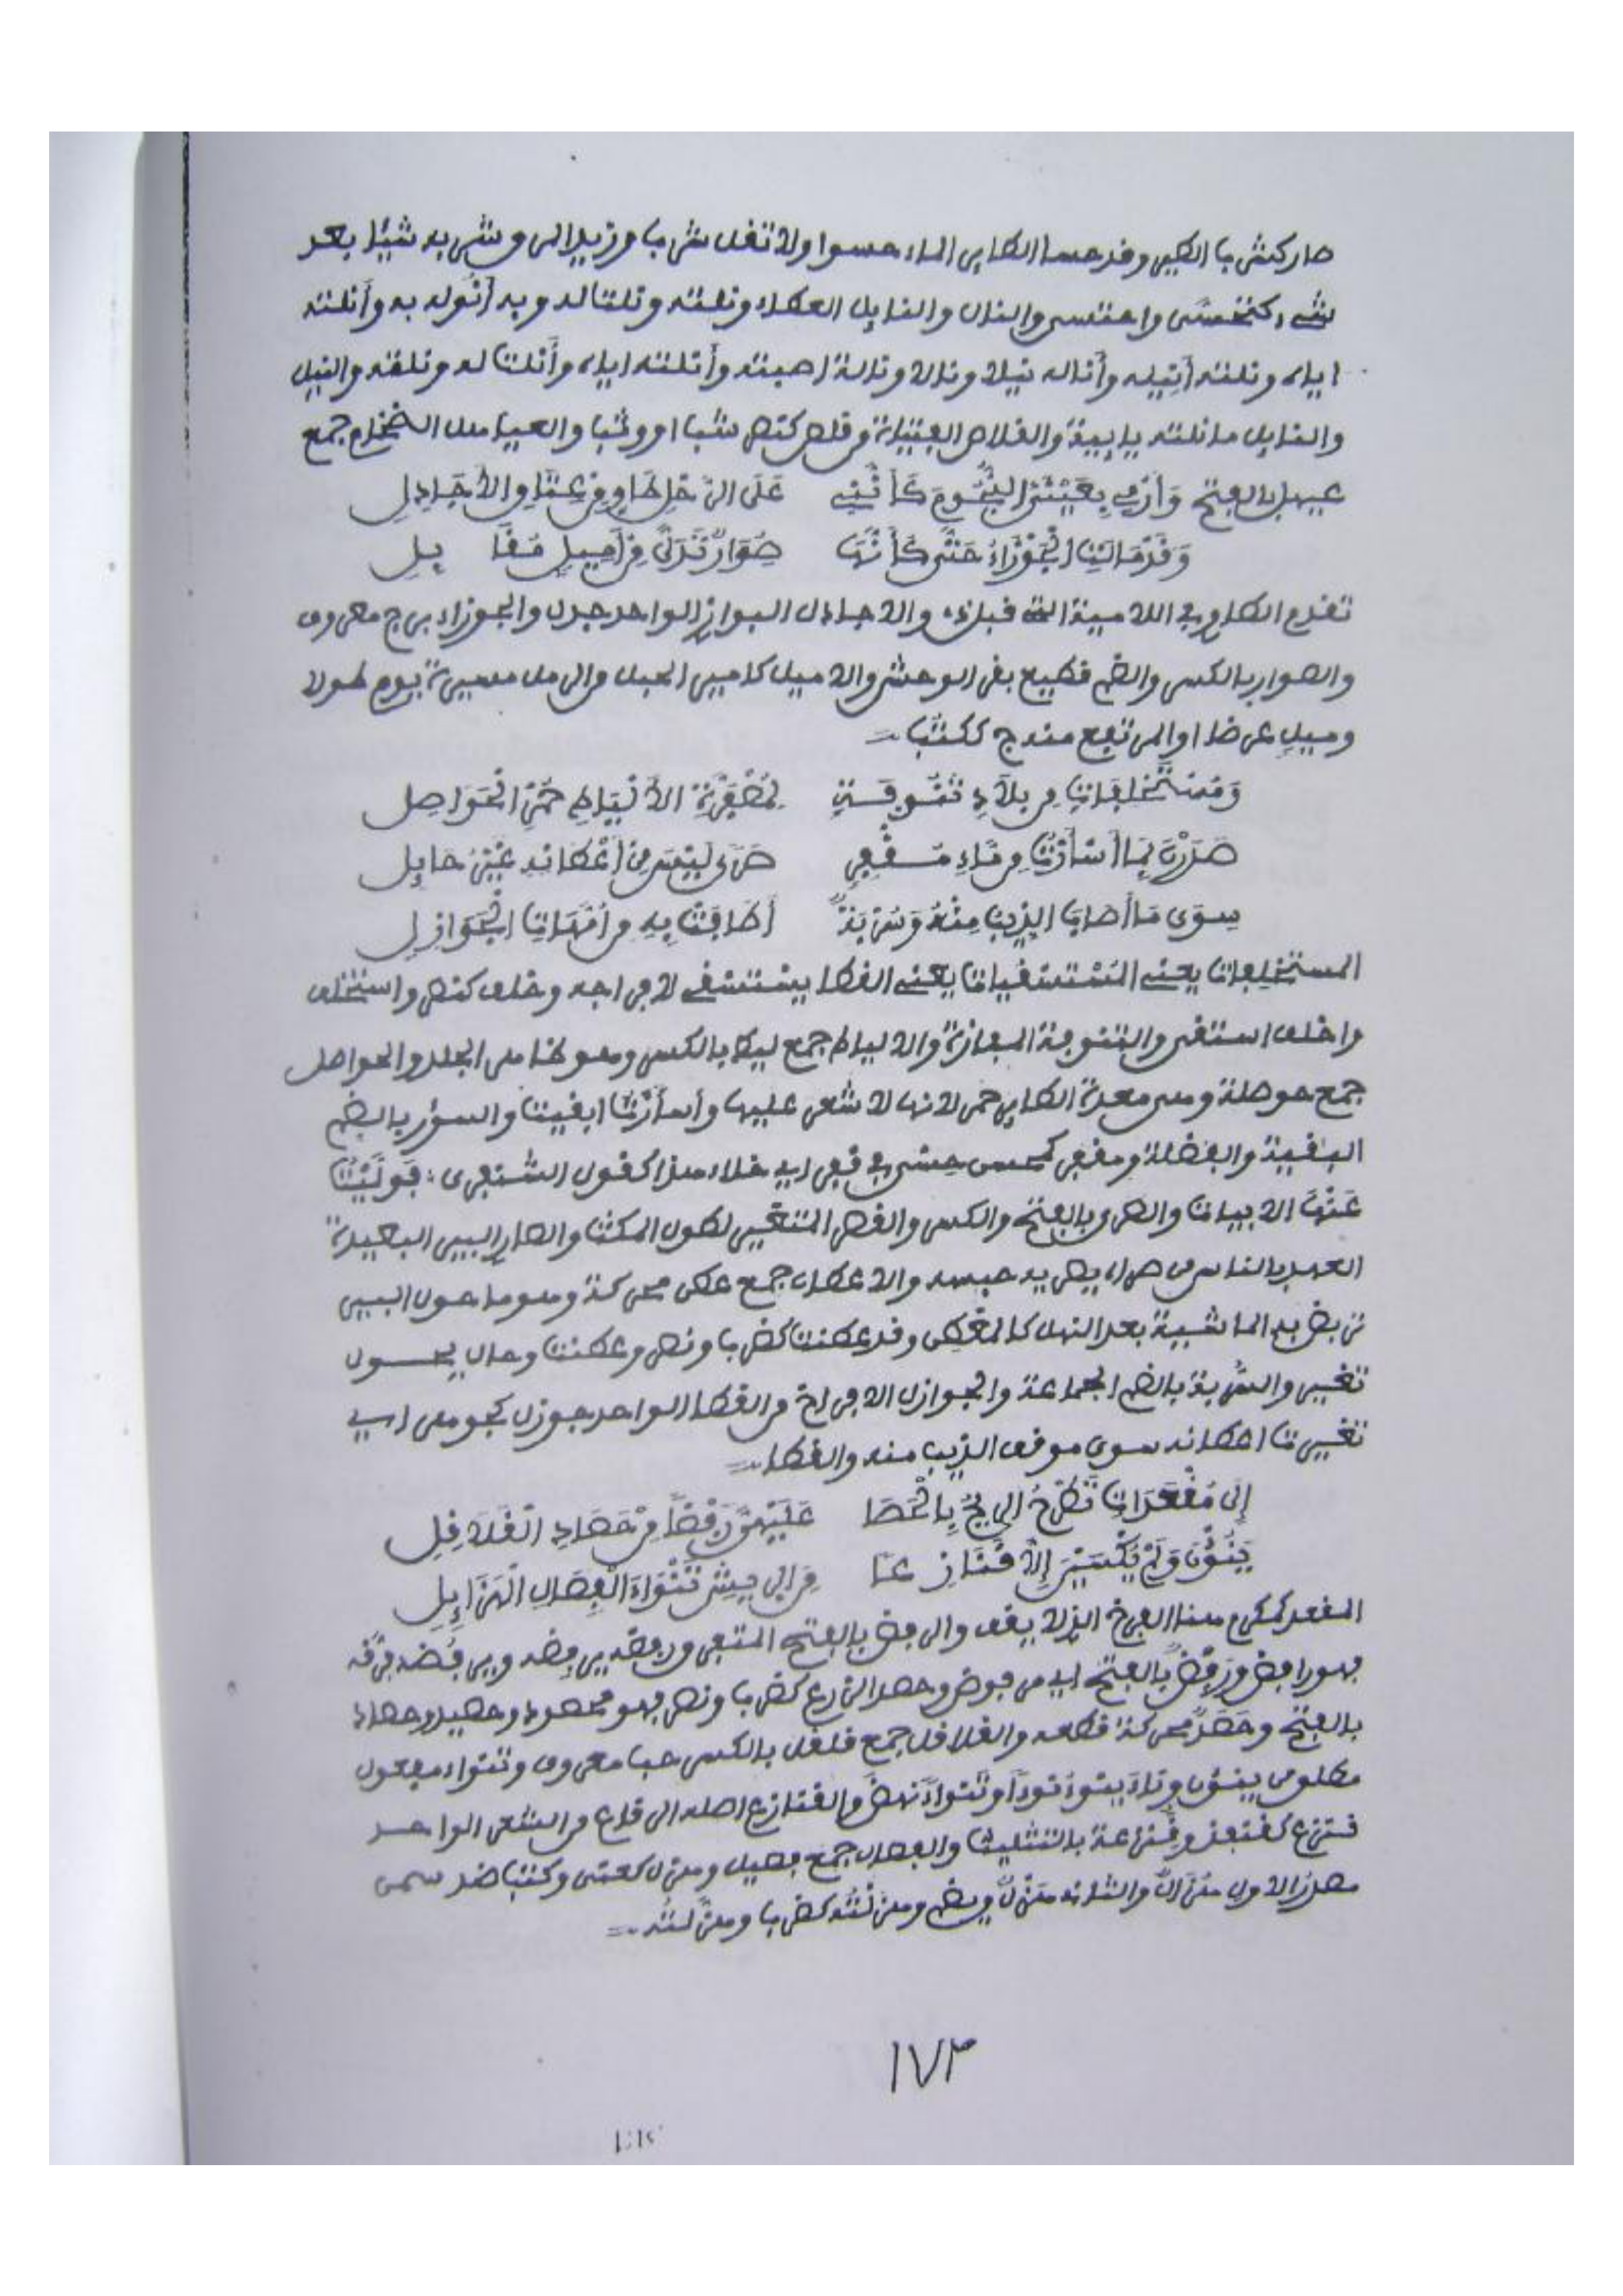 صار كشرب الكبير وقد حسا الطاير الماء حسوا ولا تقل شرب وزيد المرق شربه شيئا بعد
شيء كتحسى واحتسى والنال والنايل العطاء ونلته ونلت له وبه أنوله به وأنلته
اياه ونلته أنيله وأناله نيلا ونالا ونالة اصبته وأنلته اياه وأنلت له ونلته والنيل
والنايل ما نلته يايية والقلاص الفتية وقلص كنص شب او وثب والعياهل الضخام جمع
عيهل بالفتح وَأَرْمِي بِعَيْنَيَّ النُّجُومَ كَأَنَّنِي عَلَى الرَّحْلِ طَاوٍ مِنْ عِتَاقِ الأَجَادِلِ
وَقَدْ مَالَتِ الْجَوْزَاءُ حَتَّى كَأَنَّهَا صُوَارٌ تَدَلَّى مِنْ أَمِيلٍ مُقَابِلِ
تقدم الطاوي في اللامية التي قبل هذه والاجادل البوازي الواحد جدل والجوزاء برج معروف
والصوار بالكسر والضم قطيع بقر الوحش والاميل كامير الحبل من الرمل مسيرة يوم طولا
وميل عرضا او المرتفع منه ج ككتب =
وَمُسْتَخْلِفَاتٍ مِن بِلَادِ تَنُوفَةٍ لِمُصْفَرَّةِ الأَلْيَاطِ حُمْرِ الْحَوَاصِلِ
صَدَرْنَ بِمَا أَسْأَرْتُ مِن مَاءِ مُقْفِرٍ صَرًى لَيْسَ مِنْ أَعْطَانِهِ غَيْرُ حَايِلِ
سِوَى مَا أَصَابَ الذِّيبُ مِنْهُ وَسُرْبَةٌ أَطَافَتْ بِهِ مِن أُمَّهَاتِ الْجَوَازِلِ
المستخلفات يعني المُسْتَسْقيات يعني القطا يستسقي لافراخه وخلف كنص واستخلف
واخلف استقى والتنوفة المفازة والالياط جمع ليط بالكسر وهو هنا من الجلد والحواصل
جمع حوصلة وهي معدة الطاير حمر لانها لا شعر عليها وأسأرْتُ ابقيت والسؤر بالضم
البقية والفضلة ومقفر كمحسن حسي في قفر اي خلاء هذا كقول الشنفرى: فَوَلَّيْتُ
عَنْهَا الابيات والصرى بالفتح والكسر والقصر المتغير لطول المكث والصار البير البعيدة
العهد بالناس من صراه يصريه حبسه والاعطان جمع عطن محركة وهو ما حول البير
تربض به الماشية بعد النهل كالمعطن وقد عطنت كضرب ونصر وعطنت وحال يحول
تغير والسُّربة بالضم الجماعة والجوازل الافراخ من القطا الواحد جوزل كجوهر اي
تغيرت اعطانه سوى موقف الذيب منه والقطا =
إِلَى مُقْعَدَاتٍ تَطْرَحُ الرِّيحُ بِالضُّحَى عَلَيْهِنَّ رَفْضًا مِنْ حَصَادِ الْقُلَاقِلِ
يَنُؤْنَ وَلَمْ يُكْسَيْنَ إِلَّا قَنَازِعًا مِنَ الرِّيشِ تَنْوَاءَ الْفِصَالِ الْهَزَايِلِ
المقعد كمكرم هنا الفرخ الذي لا يقف والرفض بالفتح المتفرق ورفضه يرفضه ويرفُضه فرّقه
فهو رافض ورَفْضٌ بالفتح اي مرفوض وحصد الزرع كضرب ونصر فهو محصود وحصيد وحصاد
بالفتح وحَصَدٌ محركة قطعه والقلاقل جمع قلقل بالكسر حب معروف وتنواء مفعول
مطلق من ينؤن وناءَ ينوءُ نوءًا وتنواءً نهض والقنازع اصله الى قلع من الشعر الواحد
قنزع كقنفذ وقنزعة بالتثليث والفصال جمع فصيل وهزل كعني وكتب ضد سمن
مصدر الاول هزالٌ والثاني هَزْلٌ ويضم وهزلته كضرب وهزّلته =
١٧٣